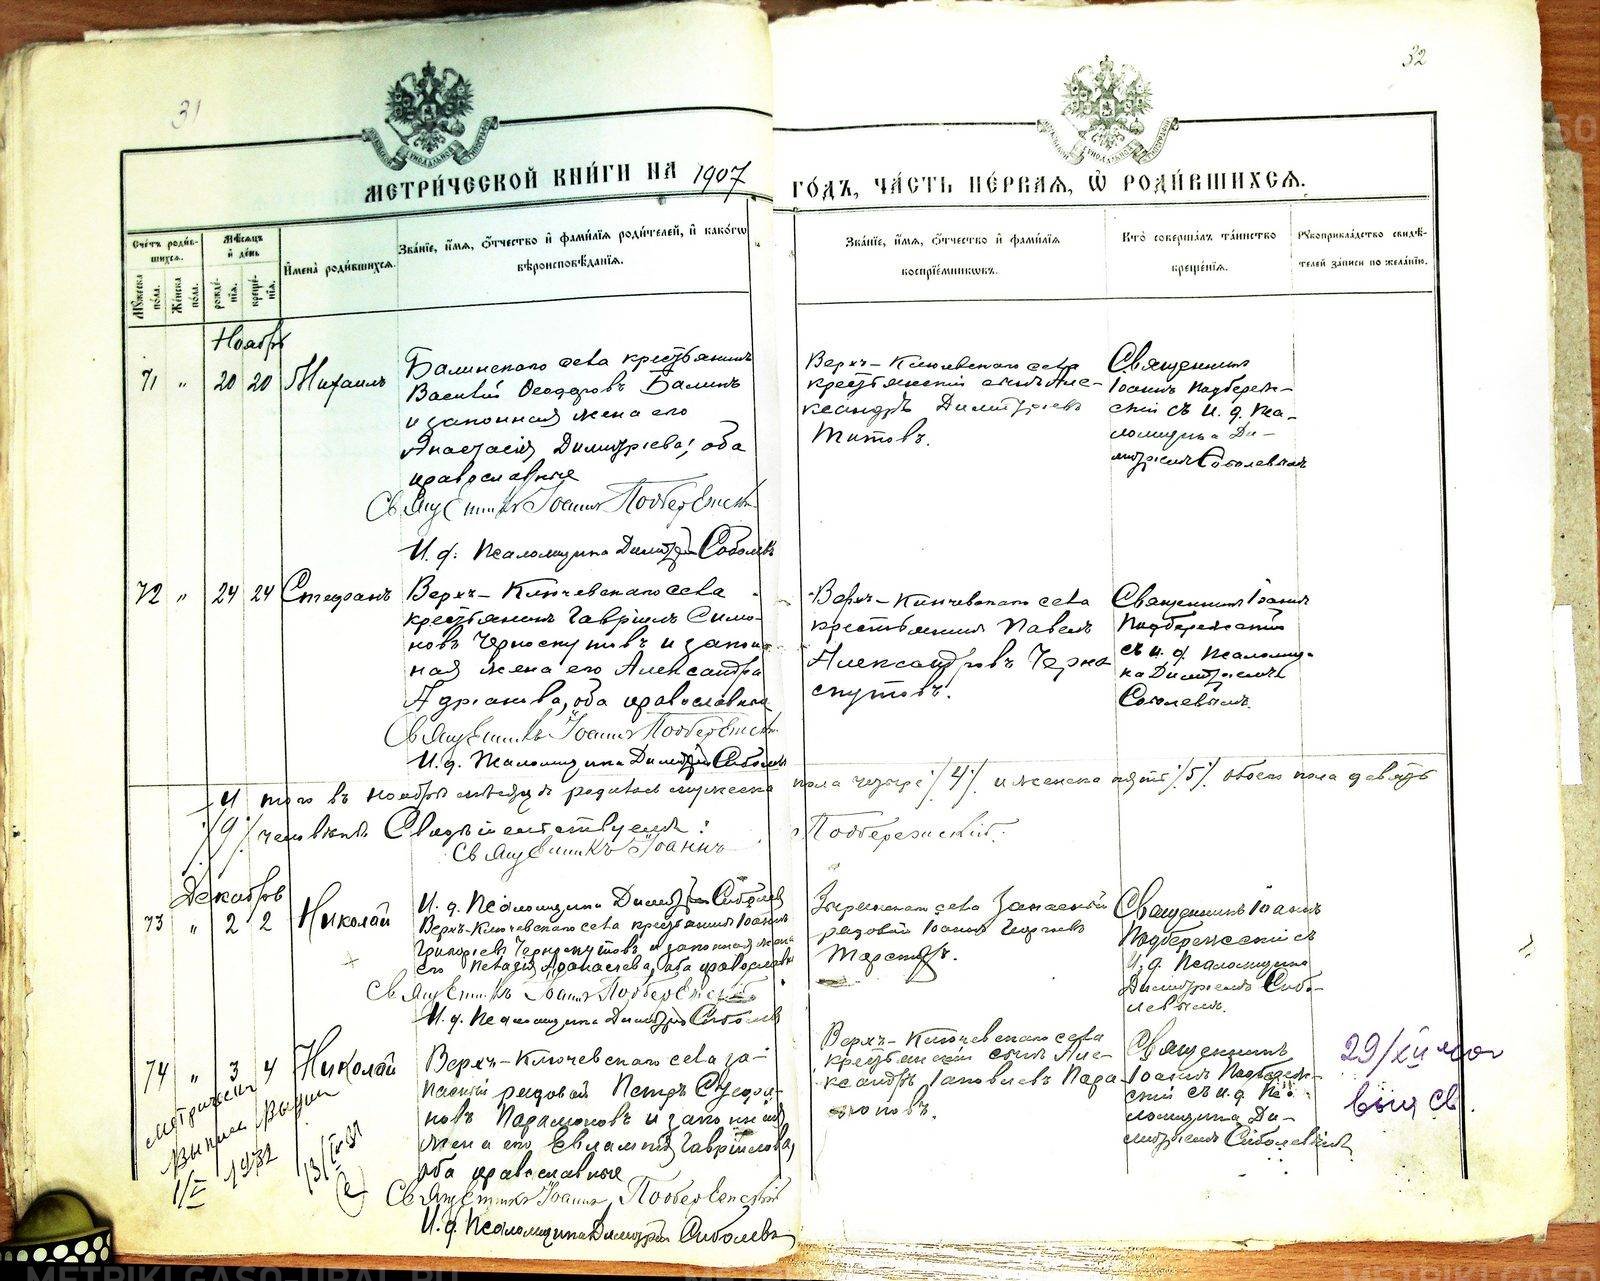 31
32
МЕТРИ́ЧЕСКОЙ КНИ́ГИ НА 1907 ГО́ДЪ, ЧА́СТЬ ПЕ́РВАЯ, Ѡ҆ РОДИ́ВШИХСЯ.
Сче́тъ роди́в-
шихся.
Мꙋ́жеска по́ла.
Же́нска по́ла.
Мѣ́сяцъ
и҆ де́нь
рожде́-
нїя.
креще́-
нїя.
И҆мена̀ роди́вшихся.
Зва́нїе, и҆́мя, ѻ҆́тчество и҆ фами́лїя роди́телей, и҆ како́гѡ
вѣроисповѣ́данїя.
Зва́нїе, и҆́мя, ѻ҆́тчество и҆ фами́лїя
воспрїе́мниковъ.
Кто̀ соверша́лъ та́инство
креще́нїя.
Рꙋкоприкла́дство свидѣ́-
телей за́писи по жела́нїю.
Ноябрь
71 " 20 20 Михаилъ
Балинскаго села крестьянинъ
Василій Ѳеодоровъ Балинъ
и законная жена его
Анастасія Димитріева, оба
православные
Священникъ Іоаннъ Подбережскій
И. д. Псаломщика Димитрій Соболевъ
Верхъ-Ключевскаго села
крестьянскій сынъ Але-
ксандръ Димитріевъ
Титовъ.
Священникъ
Іоаннъ Подбереж-
скій съ и. д. Пса-
ломщика Ди-
митріемъ Соболевымъ
72 " 24 24 Стефанъ
Верхъ-Ключевскаго села
крестьянинъ Гавріилъ Симо-
новъ Черноскутовъ и закон-
ная жена его Александра
Адріанова, оба православные
Священникъ Іоаннъ Подбережскій
И. д. Псаломщика Димитрій Соболевъ
Верхъ-Ключевскаго села
крестьянинъ Павелъ
Александровъ Черно
скутовъ.
Священникъ Іоаннъ
Подбережскій
съ и. д. Псаломщи-
ка Димитріемъ
Соболевымъ.
Итого въ ноябрѣ мѣсяцѣ родилось мужеска пола четыре /4/ и женска пять /5/ обоего пола девять
/9/ человѣкъ Свидѣтельствуемъ:
Священникъ Іоаннъ Подбережскій.
И. д. Псаломщика Димитрій Соболевъ
Декабрь
73 " 2 2 Николай
Верхъ-Ключевскаго села крестьянинъ Іоаннъ
Григорьевъ Черноскутовъ и законная жена
его Пелагія Аѳанасьева, оба православны
Священникъ Іоаннъ Подбережскій
И. д. Псаломщика Димитрій Соболевъ
села Запасный
рядовой Іоаннъ Георгіевъ
Священникъ Іоаннъ
Подбережскій съ
и. д. Псаломщика
Димитріемъ Собо-
левымъ.
74 " 3 4 Николай
Верхъ-Ключевскаго села за-
пасный рядовой Петръ Стефа-
новъ Парамоновъ и законная
жена его Евлампія Гавріилова,
оба православные
Священникъ Іоаннъ Подбережскій
И. д. Псаломщика Димитрій Соболевъ
Верхъ-Ключевскаго села
крестьянскій сынъ Але-
ксандръ Іаковлевъ Пара-
моновъ.
Священникъ
Іоаннъ Подбереж-
скій съ и. д. Пса-
ломщика Ди-
митріемъ Соболевымъ
29/XII
выд св.
Метрическ
Выпись Выдан
1/V 1932